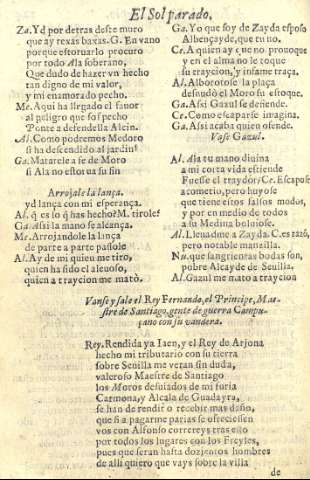 El Sol parado.
Za. Yd por detras deste muro
que ay rexas baxas. G. En vano
porque estoruarlo procuro
por todo Ala soberano,
Que dudo de hazer vn hecho
tan digno de mi valor,
y mi enamorado pecho.
Me. Aqui ha llegado el fauor
al peligro que sospecho
Ponte a defenderla Alcin.
Al. Como podremos Medoro
si ha descendido al jardin?
Ga. Matarele a fe de Moro
si Ala no estorua su fin
Arrojale la lança.
yd lança con mi esperança.
Al. q̃ es lo q̃ has hecho? M. tirole?
Ga. Assi la mano se alcança.
Mr. Arrojandole la lança
de parte a parte passole
Al. Ay de mi quien me tiro,
quien ha sido el aleuoso,
quien a traycion me matò.
Ga. Yo que soy de Zayda esposo
Albençayde, que tu no.
Ce. A quien ay que no prouoque
y en el alma no le toque
su traycion, y infame traça.
Al. Alborotose la plaça
desnudò el Moro su estoque.
Ga. Assi Gazul se defiende.
Ce. Como escaparse imagina.
Ga. Assi acaba quien ofende.
Vase Gazul.
Al. Ala tu mano diuina
a mi corta vida estiende
Fuesse el traydor? Ce. Escapose
acometiò, pero huyose
que tiene estos falsos modos,
y por en medio de todos
a su Medina boluiose.
Al. Lleuadme a Zayda. C. es razõ,
pero notable manzilla.
Nu. que sangrientas bodas son,
pobre Alcayde de Seuilla.
Al. Gazul me mato a traycion
Vanse y sale el Rey Fernando, el Principe, Mae-
stre de Santiago, gente de guerra Campu-
çano con su vandera.
Rey. Rendida ya Iaen, y el Rey de Arjona
hecho mi tributario con su tierra
sobre Seuilla me veran sin duda,
valeroso Maestre de Santiago
los Moros desuiados de mi furia
Carmona, y Alcala de Guadayra,
se han de rendir o recebir mas daño,
que si a pagarme parias se ofreciessen
vos con Alfonso correreys tras esto
por todos los lugares con los Freyles,
pues que seran hasta dozientos hombres
de alli quiero que vays sobre la villa
de